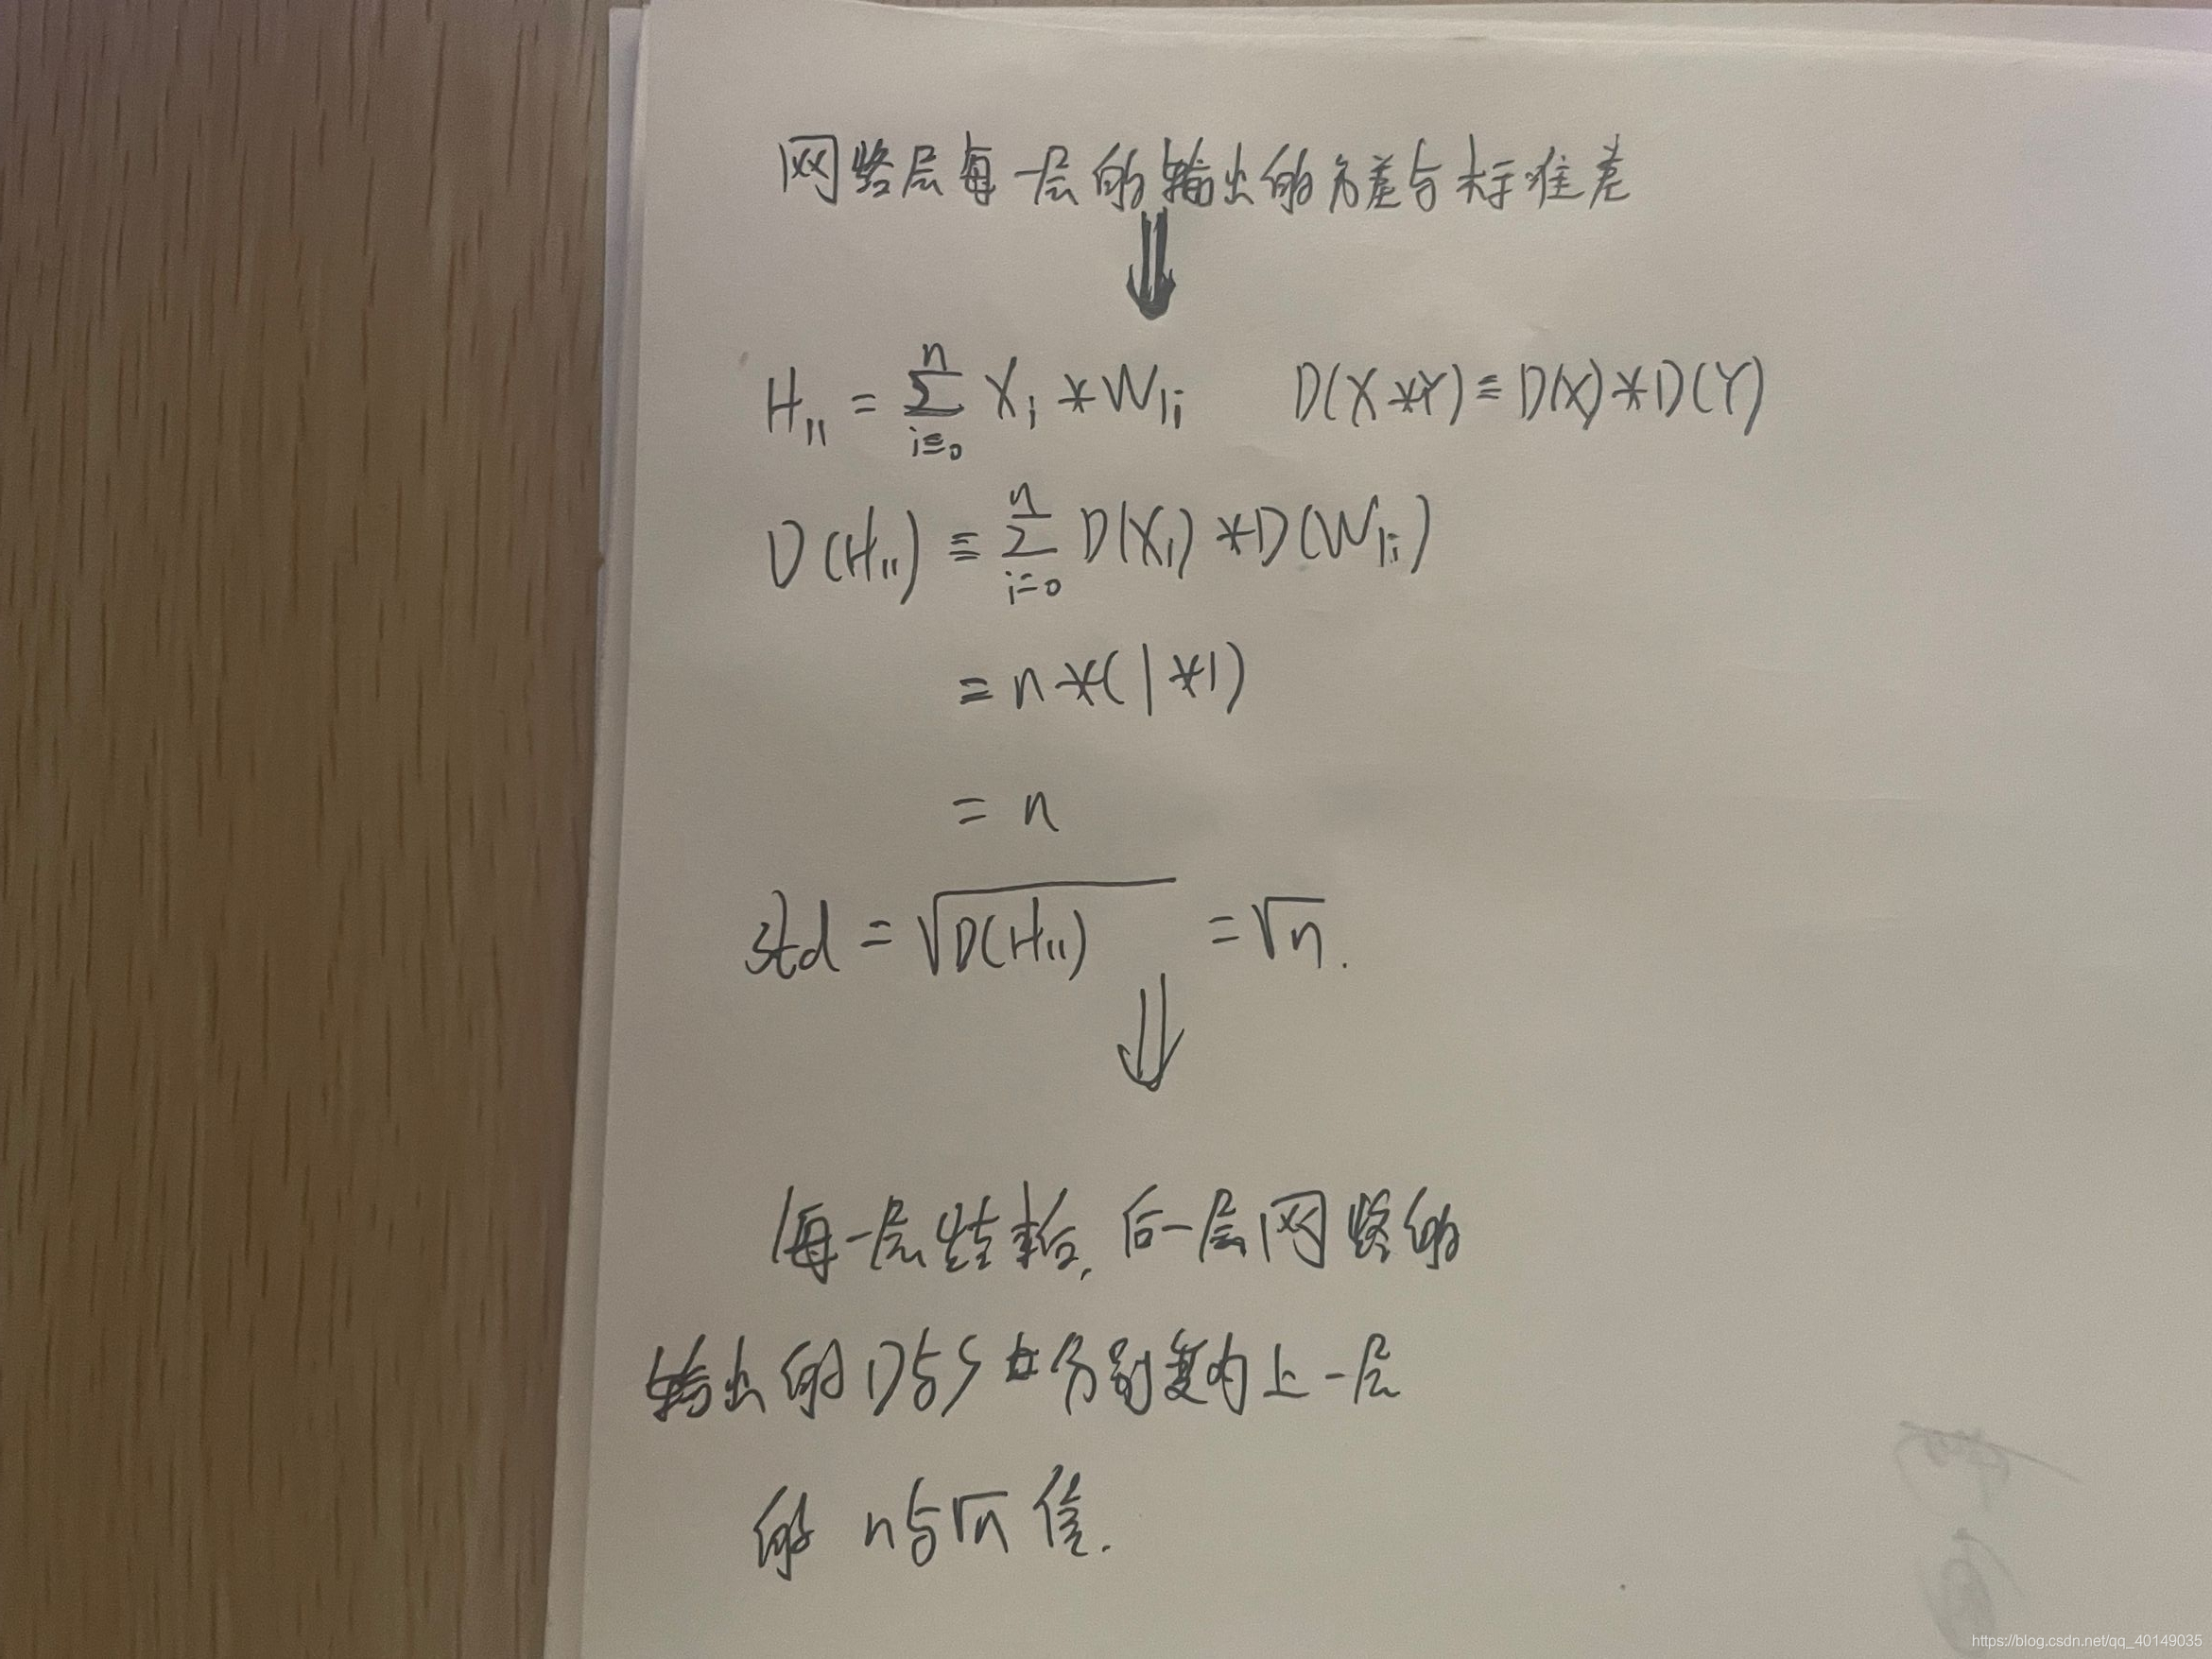 网络层每一层的输出的方差与标准差
⇓
H₁₁ = ∑ⁿᵢ₌₀ Xᵢ * W₁ᵢ D(X*Y) = D(X)*D(Y)
D(H₁₁) = ∑ⁿᵢ₌₀ D(Xᵢ) * D(W₁ᵢ)
= n*(1*1)
= n
std = √D(H₁₁) = √n.
⇓
每一层结束后,后一层网络的
输出的D与S 分别变为上一层
的 n与√n 值.
https://blog.csdn.net/qq_40149035